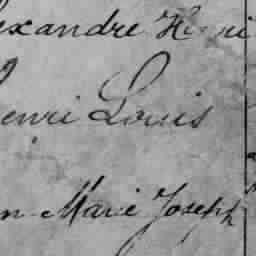 exandre Henri
enri Louis
n Marie Joseph